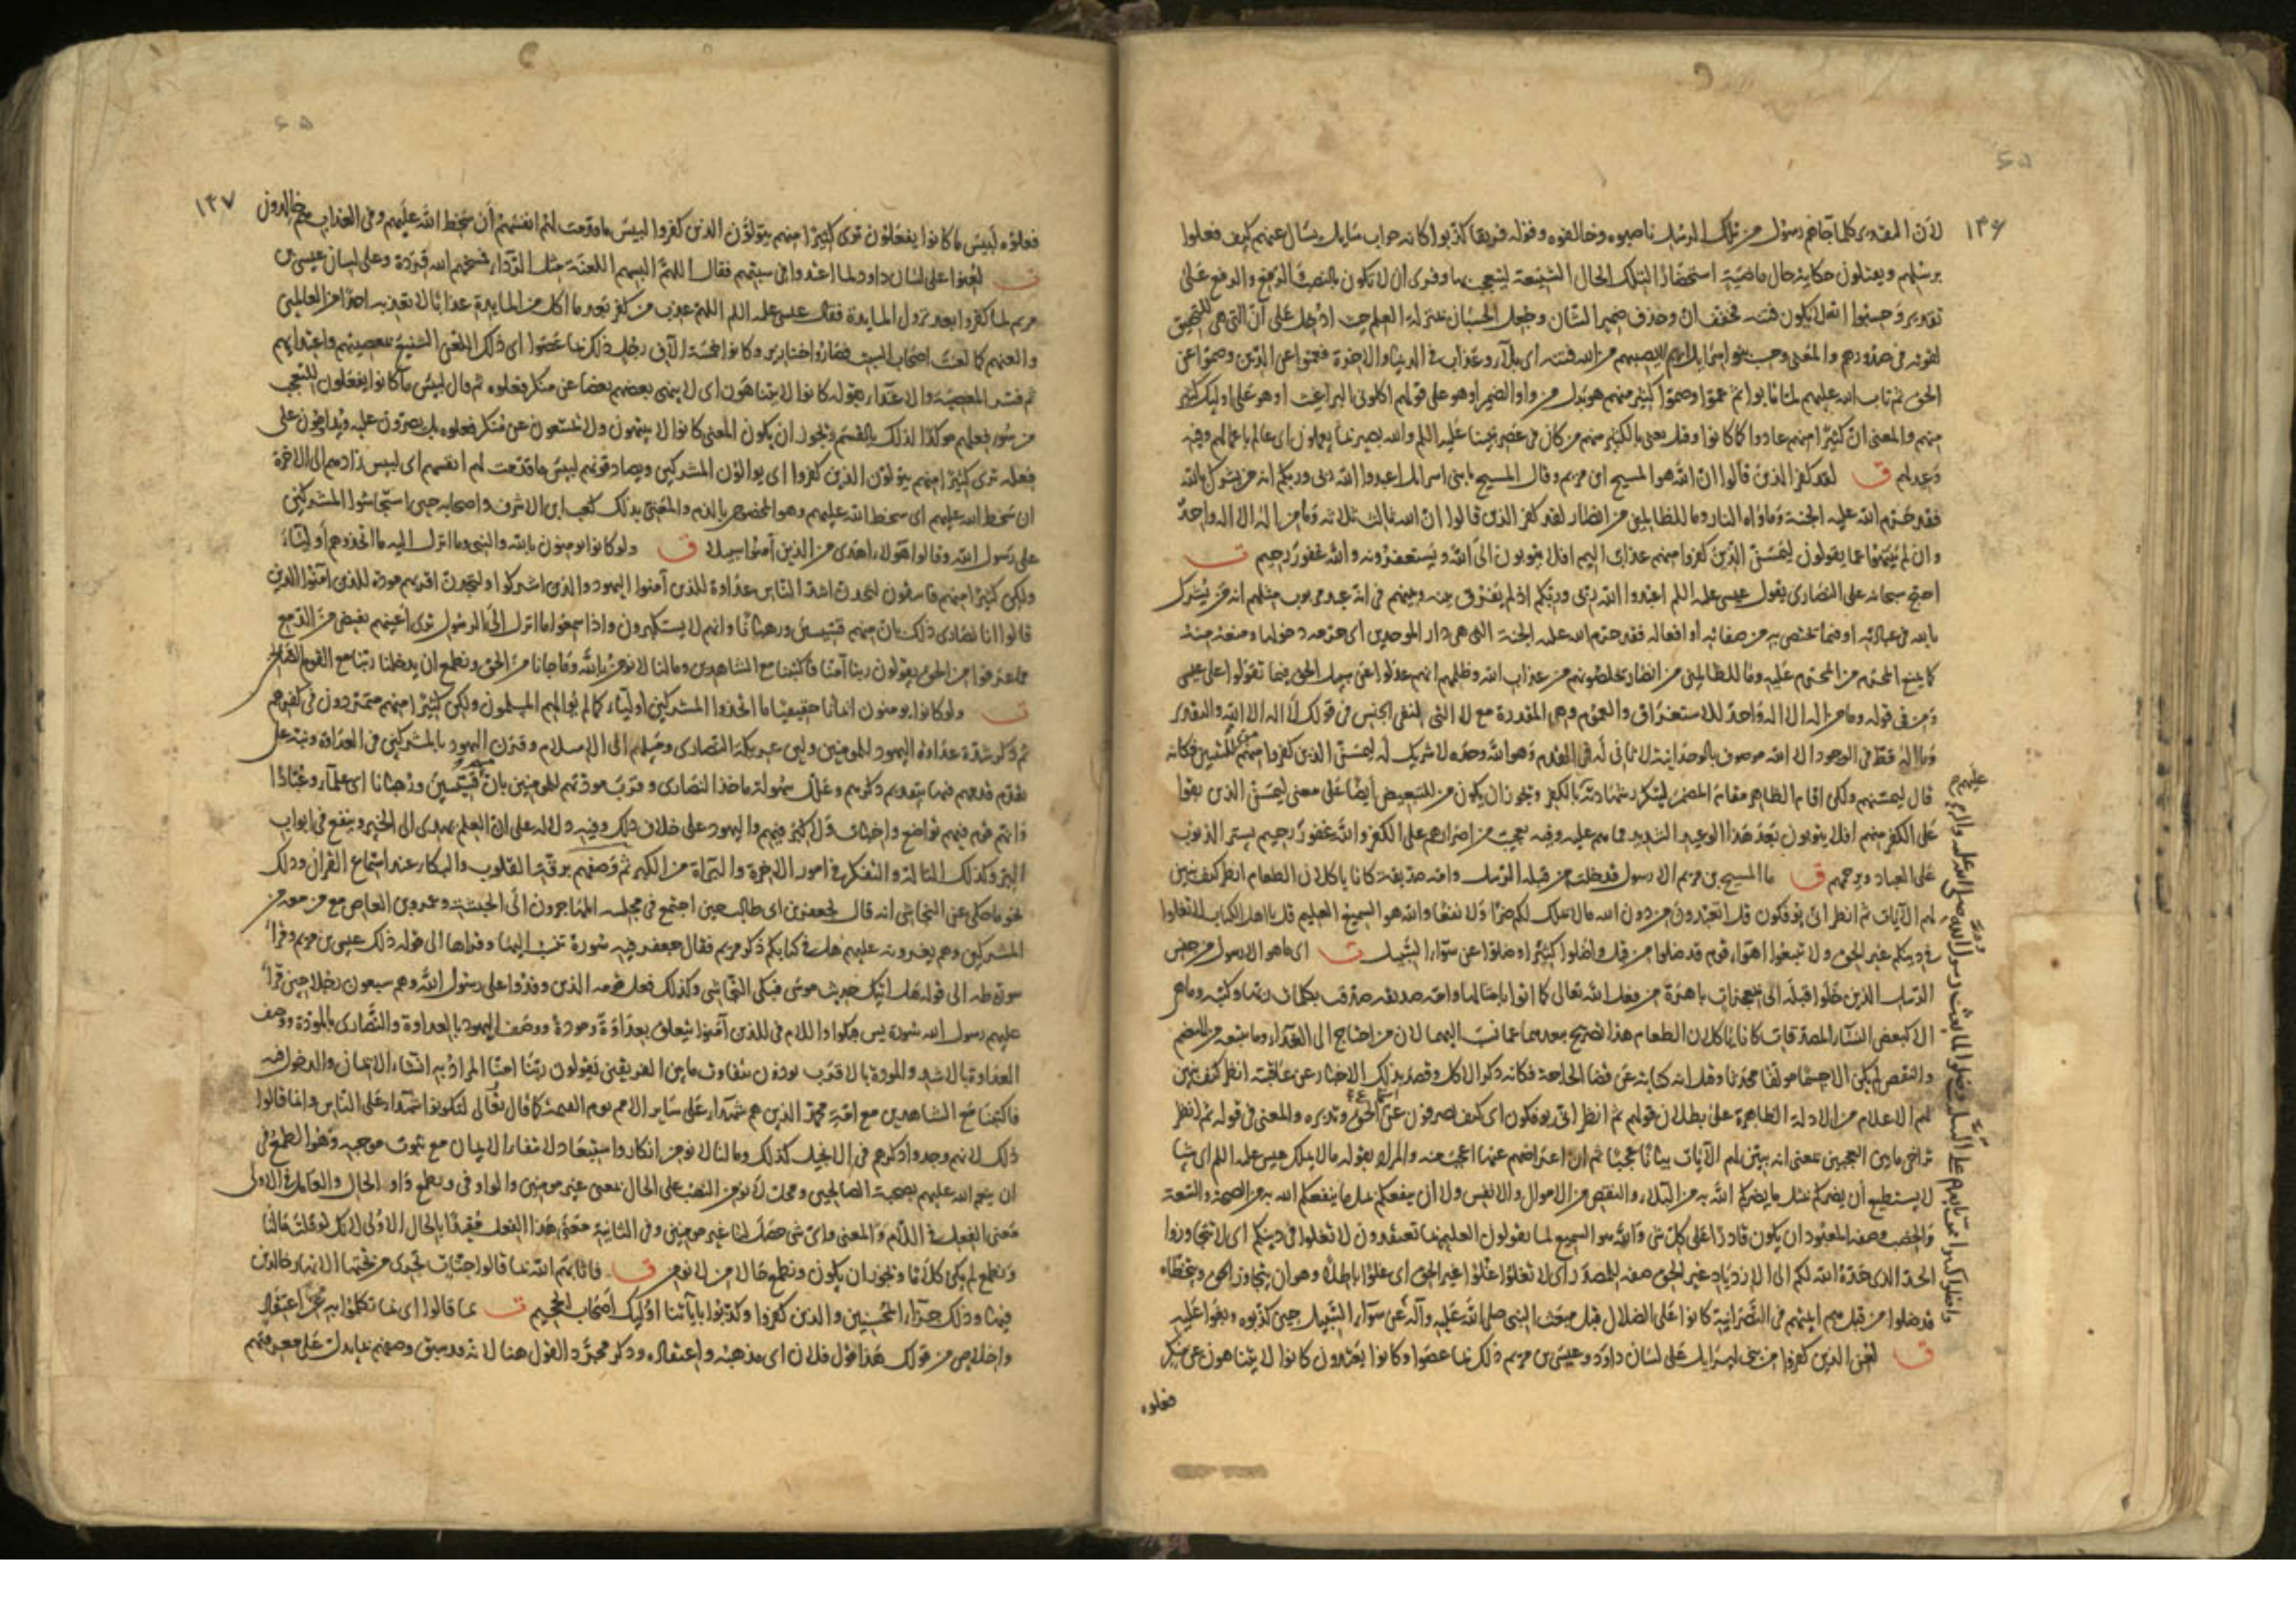 ١٣۶
لان التقدير كلما جاءهم رسول من تلك الرسل ناصبوه وخالفوه وقوله فريقا كذبوا كانه جواب سايل يسال عنهم كيف فعلوا
برسلهم ويقتلون حكاية حال ماضية استحضارا لتلك الحال الشنيعة ليتعجب بها وقرئ ان لا تكون بالنصب والرفع والرفع على
تقدير وحسبوا انه لا يكون فتنة فخفف ان وحذف ضمير الشان وجعل الحسبان بمنزلة العلم حيث ادخل على ان التي هي للتحقيق
لقوته في صدورهم والمعنى وحسب بنوا اسرايل انهم لا يصيبهم من الله فتنة اى بلآء وعذاب في الدنيا والاخرة فعموا عن الدين وصموا عن
الحق ثم تاب الله عليهم لما تابوا ثم عموا وصموا كثير منهم هو بدل من واو الضمير او هو على قولهم اكلوني البراغيث او هو على اوليك كثير
منهم والمعنى ان كثيرا منهم عادوا كما كانوا وقيل يعنى بالكثير منهم من كان في عصر نبينا عليه السلم والله بصير بما يعملون اى عالم باعمالهم وفيه
وعيد لهم ق لقد كفر الذين قالوا ان الله هو المسيح ابن مريم وقال المسيح يا بنى اسرايل اعبدوا الله ربى وربكم انه من يشرك بالله
فقد حرم الله عليه الجنة وماواه النار وما للظالمين من انصار لقد كفر الذين قالوا ان الله ثالث ثلاثة وما من اله الا اله واحد
وان لم ينتهوا عما يقولون ليمسن الذين كفروا منهم عذاب اليم افلا يتوبون الى الله ويستغفرونه والله غفور رحيم ت
احتج سبحانه على النصارى بقول عيسى عليه السلم اعبدوا الله ربى وربكم اذ لم يفرق بينه وبينهم فى انه عبد مربوب مثلهم انه من يشرك
بالله فى عبادته او فيما يختص به من صفاته او افعاله فقد حرم الله عليه الجنة التى هى دار الموحدين اى حرمه دخولها ومنعه منه
كما يمنع المحرم من المحرم عليه وما للظالمين من انصار يخلصونهم من عذاب الله وظلمهم انهم عدلوا عن سبيل الحق فيما تقولوا على عيسى
ومن فى قوله وما من اله الا اله واحد للاستغراق والعموم وهى المقدرة مع لا التى لنفى الجنس فى قولك لا اله الا الله والتقدير
وما اله قط فى الوجود الا الله موصوف بالوحدانية لا ثانى له فى القدم وهو الله وحده لا شريك له ليمسن الذين كفروا منهم للتبيين فكانه
قال ليمسنهم ولكن اقام الظاهر مقام المضمر ليتكرر شهادته بالكفر ويجوز ان يكون من للتبعيض ايضا على معنى ليمسن الذين بقوا
على الكفر منهم افلا يتوبون بعد هذا الوعيد الشديد مما هم عليه وفيه تعجيب من اصرارهم على الكفر والله غفور رحيم يستر الذنوب
على العباد ويرحمهم ق ما المسيح بن مريم الا رسول قد خلت من قبله الرسل وامه صديقة كانا ياكلان الطعام انظر كيف نبين
لهم الآيات ثم انظر انى يوفكون قل اتعبدون من دون الله ما لا يملك لكم ضرا ولا نفعا والله هو السميع العليم قل يا اهل الكتاب لا تغلوا
فى دينكم غير الحق ولا تتبعوا اهواء قوم قد ضلوا من قبل واضلوا كثيرا وضلوا عن سوآء السبيل ت اى ما هو الا رسول من جنس
الرسل الذين خلوا قبله اتى بمعجزات باهرة من فعل الله تعالى كما اتوا بامثالها وامه صديقة صدقت بكلمات ربها وكتبه وما هى
الا كبعض النساء المصدقات كانا ياكلان الطعام هذا تصريح ببعدهما عما نسب اليهما لان من احتاج الى الغذاء وما يتبعه من الهضم
والنقض لم يكن الا جسما مولفا محدثا وقيل انه كناية عن قضا الحاجة فكانه ذكر الاكل وقصد بذلك الاخبار عن عاقبته انظر كيف نبين
لهم الاعلام من الادلة الظاهرة على بطلان قولهم ثم انظر انى يوفكون اى كيف يصرفون عن استماع الحق وتدبره والمعنى فى قوله ثم انظر
تراخى ما بين العجبين بمعنى انه يبين لهم الآيات بيانا عجيبا ثم ان اعراضهم عنها اعجب منه والمراد بقوله ما لا يملك عيسى عليه السلم اى شيا
لا يستطيع ان يضركم بمثل ما يضركم الله به من البلاء والنقص من الاموال والانفس ولا ان ينفعكم بمثل ما ينفعكم الله به من الصحة والسعة
والخصب وصفة المعبود ان يكون قادرا على كل شى والله هو السميع لما يقولون العليم بما تعتقدون لا تغلوا فى دينكم اى لا تتجاوزوا
الحد الذى حده الله لكم الى الازدياد غير الحق صفة للمصدر اى لا تغلوا غلوا غير الحق اى غلوا باطلا وهو ان يتجاوز الحق ويتخطاه
قد ضلوا من قبل هم ايمتهم فى النصرانية كانوا على الضلال قبل مبعث النبى صلى الله عليه وآله عن سوآء السبيل حين كذبوه وبغوا عليه
ق لعن الذين كفروا من بنى اسرايل على لسان داود وعيسى بن مريم ذلك بما عصوا وكانوا يعتدون كانوا لا يتناهون عن منكر
فعلوه
١٣٧
فعلوه لبيس ما كانوا يفعلون ترى كثيرا منهم يتولون الذين كفروا لبيس ما قدمت لهم انفسهم ان سخط الله عليهم وفى العذاب هم خالدون
ت لعنوا على لسان داود لما اعتدوا فى سبتهم فقال اللهم البسهم اللعنة مثل الردآء فمسخهم الله قردة وعلى لسان عيسى بن
مريم لما كفروا بعد نزول المايدة فقال عيسى عليه السلم اللهم عذب من كفر بعد ما اكل من المايدة عذابا لا تعذبه احدا من العالمين
والعنهم كما لعنت اصحاب السبت فصاروا خنازير وكانوا خمسة الآف رجل ذلك بما عصوا اى ذلك اللعن الشنيع بمعصيتهم واعتدايهم
ثم فسر المعصية والاعتداء بقوله كانوا لا يتناهون اى لا ينهى بعضهم بعضا عن منكر فعلوه ثم قال لبيس ما كانوا يفعلون للتعجب
من سوء فعلهم موكدا لذلك بالقسم ويجوز ان يكون المعنى كانوا لا ينتهون ولا يمتنعون عن منكر فعلوه بل يصرون عليه ويداومون على
فعله ترى كثيرا منهم يتولون الذين كفروا اى يوالون المشركين ويصادقونهم لبيس ما قدمت لهم انفسهم اى لبيس زادهم الى الاخرة
ان سخط الله عليهم اى سخط الله عليهم وهو المخصوص بالذم والمعنى بذلك كعب ابن الاشرف واصحابه حين استجاشوا المشركين
على رسول الله وقالوا هؤلاء اهدى من الذين آمنوا سبيلا ق ولو كانوا يومنون بالله والنبى وما انزل اليه ما اتخذوهم اولياء
ولكن كثيرا منهم فاسقون لتجدن اشد الناس عداوة للذين آمنوا اليهود والذين اشركوا ولتجدن اقربهم مودة للذين آمنوا الذين
قالوا انا نصارى ذلك بان منهم قسيسين ورهبانا وانهم لا يستكبرون واذا سمعوا ما انزل الى الرسول ترى اعينهم تفيض من الدمع
مما عرفوا من الحق يقولون ربنا آمنا فاكتبنا مع الشاهدين وما لنا لا نومن بالله وما جانا من الحق ونطمع ان يدخلنا ربنا مع القوم الصالحين
ت ولو كانوا يومنون ايمانا حقيقيا ما اتخذوا المشركين اولياء كما لم يوالهم المسلمون ولكن كثيرا منهم متمردون فى كفرهم
ثم ذكر شدة عداوة اليهود للمومنين ولين عريكة النصارى وميلهم الى الاسلام وقرن اليهود بالمشركين فى العداوة ونبه على
تقدم قدمهم فيها بتقديم ذكرهم وعلل سهولة ماخذ النصارى وقرب مودتهم للمومنين بان منهم قسيسين ورهبانا اى علمآء وعبادا
وانهم قوم فيهم تواضع واخبات ولا كبر فيهم واليهود على خلاف ذلك وفيه دلالة على ان العلم يهدى الى الخير وينفع فى ابواب
البر وكذلك التاله والتفكر فى امور الاخرة والبراة من الكبر ثم وصفهم برقة القلوب والبكاء عند استماع القران وذلك
نحو ما حكى عن النجاشى انه قال لجعفر بن ابى طالب حين اجتمع فى مجلسه المهاجرون الى الحبشة وعمرو بن العاص مع من معه من
المشركين وهم يغرونه عليهم هل فى كتابكم ذكر مريم فقال جعفر فيه سورة تنسب اليها وقراها الى قوله ذلك عيسى بن مريم وقرا
سورة طه الى قوله هل اتيك حديث موسى فبكى النجاشى وكذلك فعل قومه الذين وفدوا على رسول الله وهم سبعون رجلا حين قرا
عليهم رسول الله سورة يس فبكوا واللام فى للذين آمنوا يتعلق بعداوة ومودة ووصف اليهود بالعداوة والنصارى بالمودة ووصف
العداوة بالاشد والمودة بالاقرب يوذن بتفاوت ما بين الفريقين يقولون ربنا امنا المراد به انشاء الايمان والدخول فيه
فاكتبنا مع الشاهدين مع امة محمد الذين هم شهداء على ساير الامم يوم القيمة كما قال تعالى لتكونوا شهداء على الناس وانما قالوا
ذلك لانهم وجدوا ذكرهم فى الانجيل كذلك وما لنا لا نومن انكار واستبعاد لانتفاء الايمان مع ثبوت موجبه وهو الطمع فى
ان ينعم الله عليهم بصحبة الصالحين ومحل لا نومن النصب على الحال بمعنى غير مومنين والواو فى ونطمع واو الحال والعامل فى الاولى
معنى الفعل فى اللام والمعنى واى شى حصل لنا غير مومنين وفى الثانية معنى هذا الفعل مقيدا بالحال الاولى لانك لو قلت مالنا
ونطمع لم يكن كلاما ويجوز ان يكون ونطمع حالا من لا نومن ق فاثابهم الله بما قالوا جنات تجرى من تحتها الانهار خالدين
فيها وذلك جزآء المحسنين والذين كفروا وكذبوا بآياتنا اوليك اصحاب الجحيم ت بما قالوا اى بما تكلموا به عن اعتقاد
واخلاص من قولك هذا قول فلان اى مذهبه واعتقاده وذكر مجرد القول هنا لانه قد سبق وصفهم بما يدل على معرفتهم